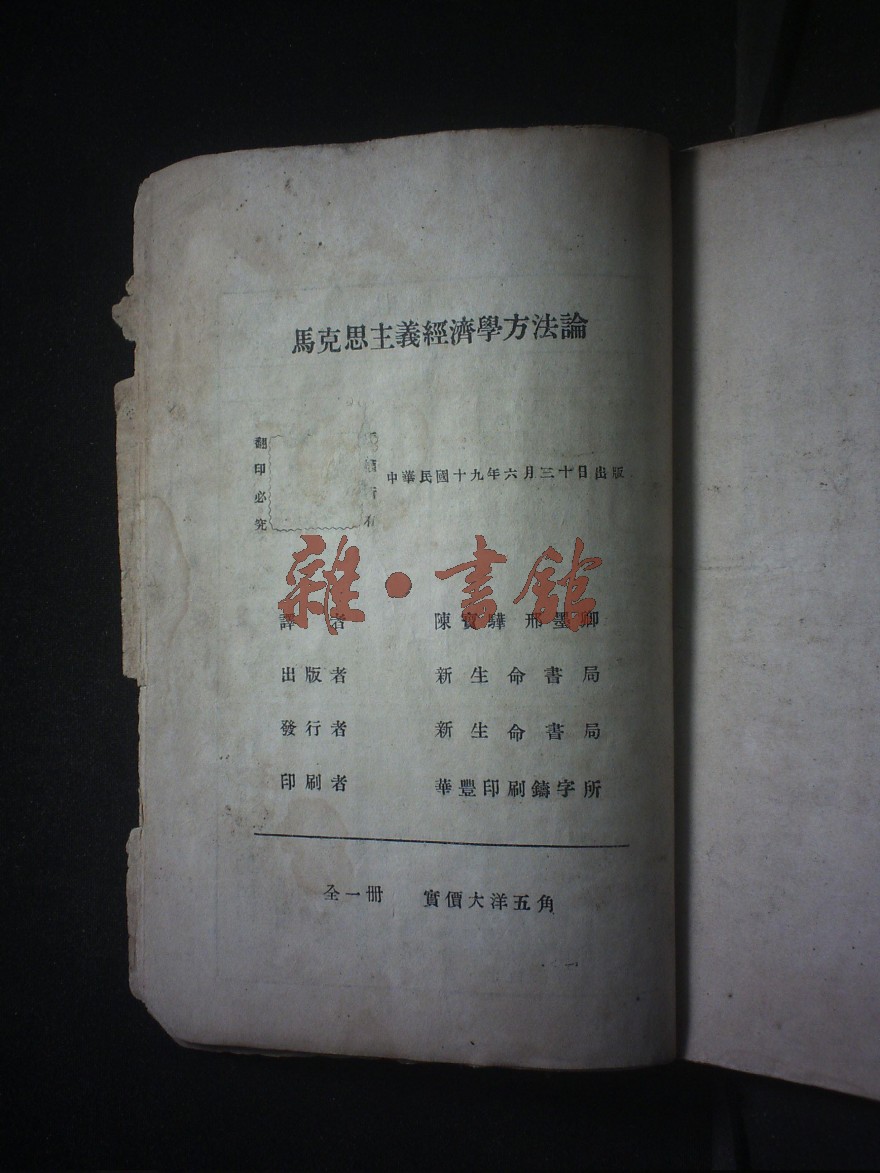 馬克思主義經濟學方法論
翻印必究
中華民國十九年六月三十日出版
雜·書館
譯者 陳寶驊 邢墨卿
出版者 新生命書局
發行者 新生命書局
印刷者 華豐印刷鑄字所
全一冊 實價大洋五角